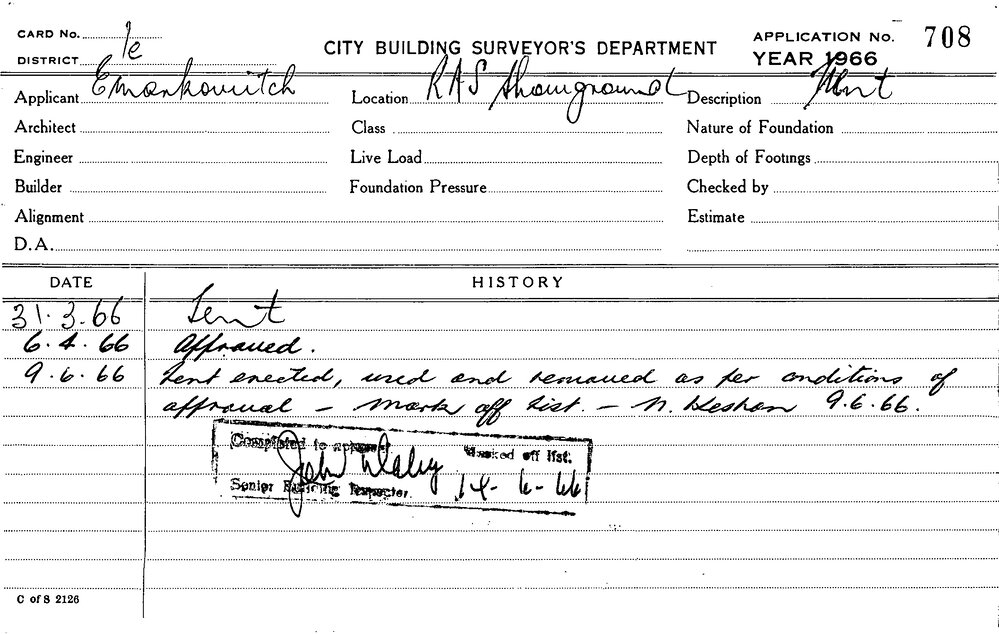 CARD No. 1e
CITY BUILDING SURVEYOR'S DEPARTMENT
APPLICATION No. 708
DISTRICT
YEAR 1966
Applicant E Markovitch Location RAS Showground Description Tent
Architect Class Nature of Foundation
Engineer Live Load Depth of Footings
Builder Foundation Pressure Checked by
Alignment Estimate
D.A.
DATE HISTORY
31.3.66 Tent
6.4.66 Approved.
9.6.66 Tent erected, used and removed as per conditions of
approval - Mark off list. - N. Heshon 9.6.66.
Completed to approval Marked off list.
John Daley 14-6-66
Senior Building Inspector.
C of S 2126